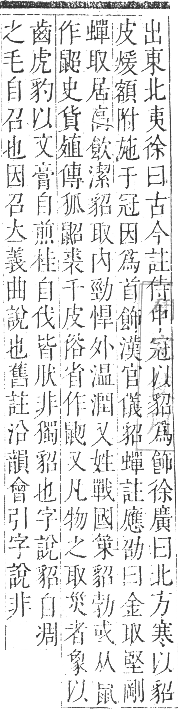 出東北夷徐曰古今註侍中冠以貂爲飾徐廣曰北方寒以貂
皮煖額附施于冠因爲首飾漢官儀貂蟬註應劭曰金取堅剛
蟬取居高飲潔貂取內勁悍外溫潤又姓戰國策貂勃或从鼠
作鼦史貨殖傳狐鼦裘千皮俗省作鼦又凡物之取災者象以
齒虎豹以文膏自煎桂自伐皆肰非獨貂也字說貂自凋
之毛自召也因召大義曲說也舊註沿韻會引字說非